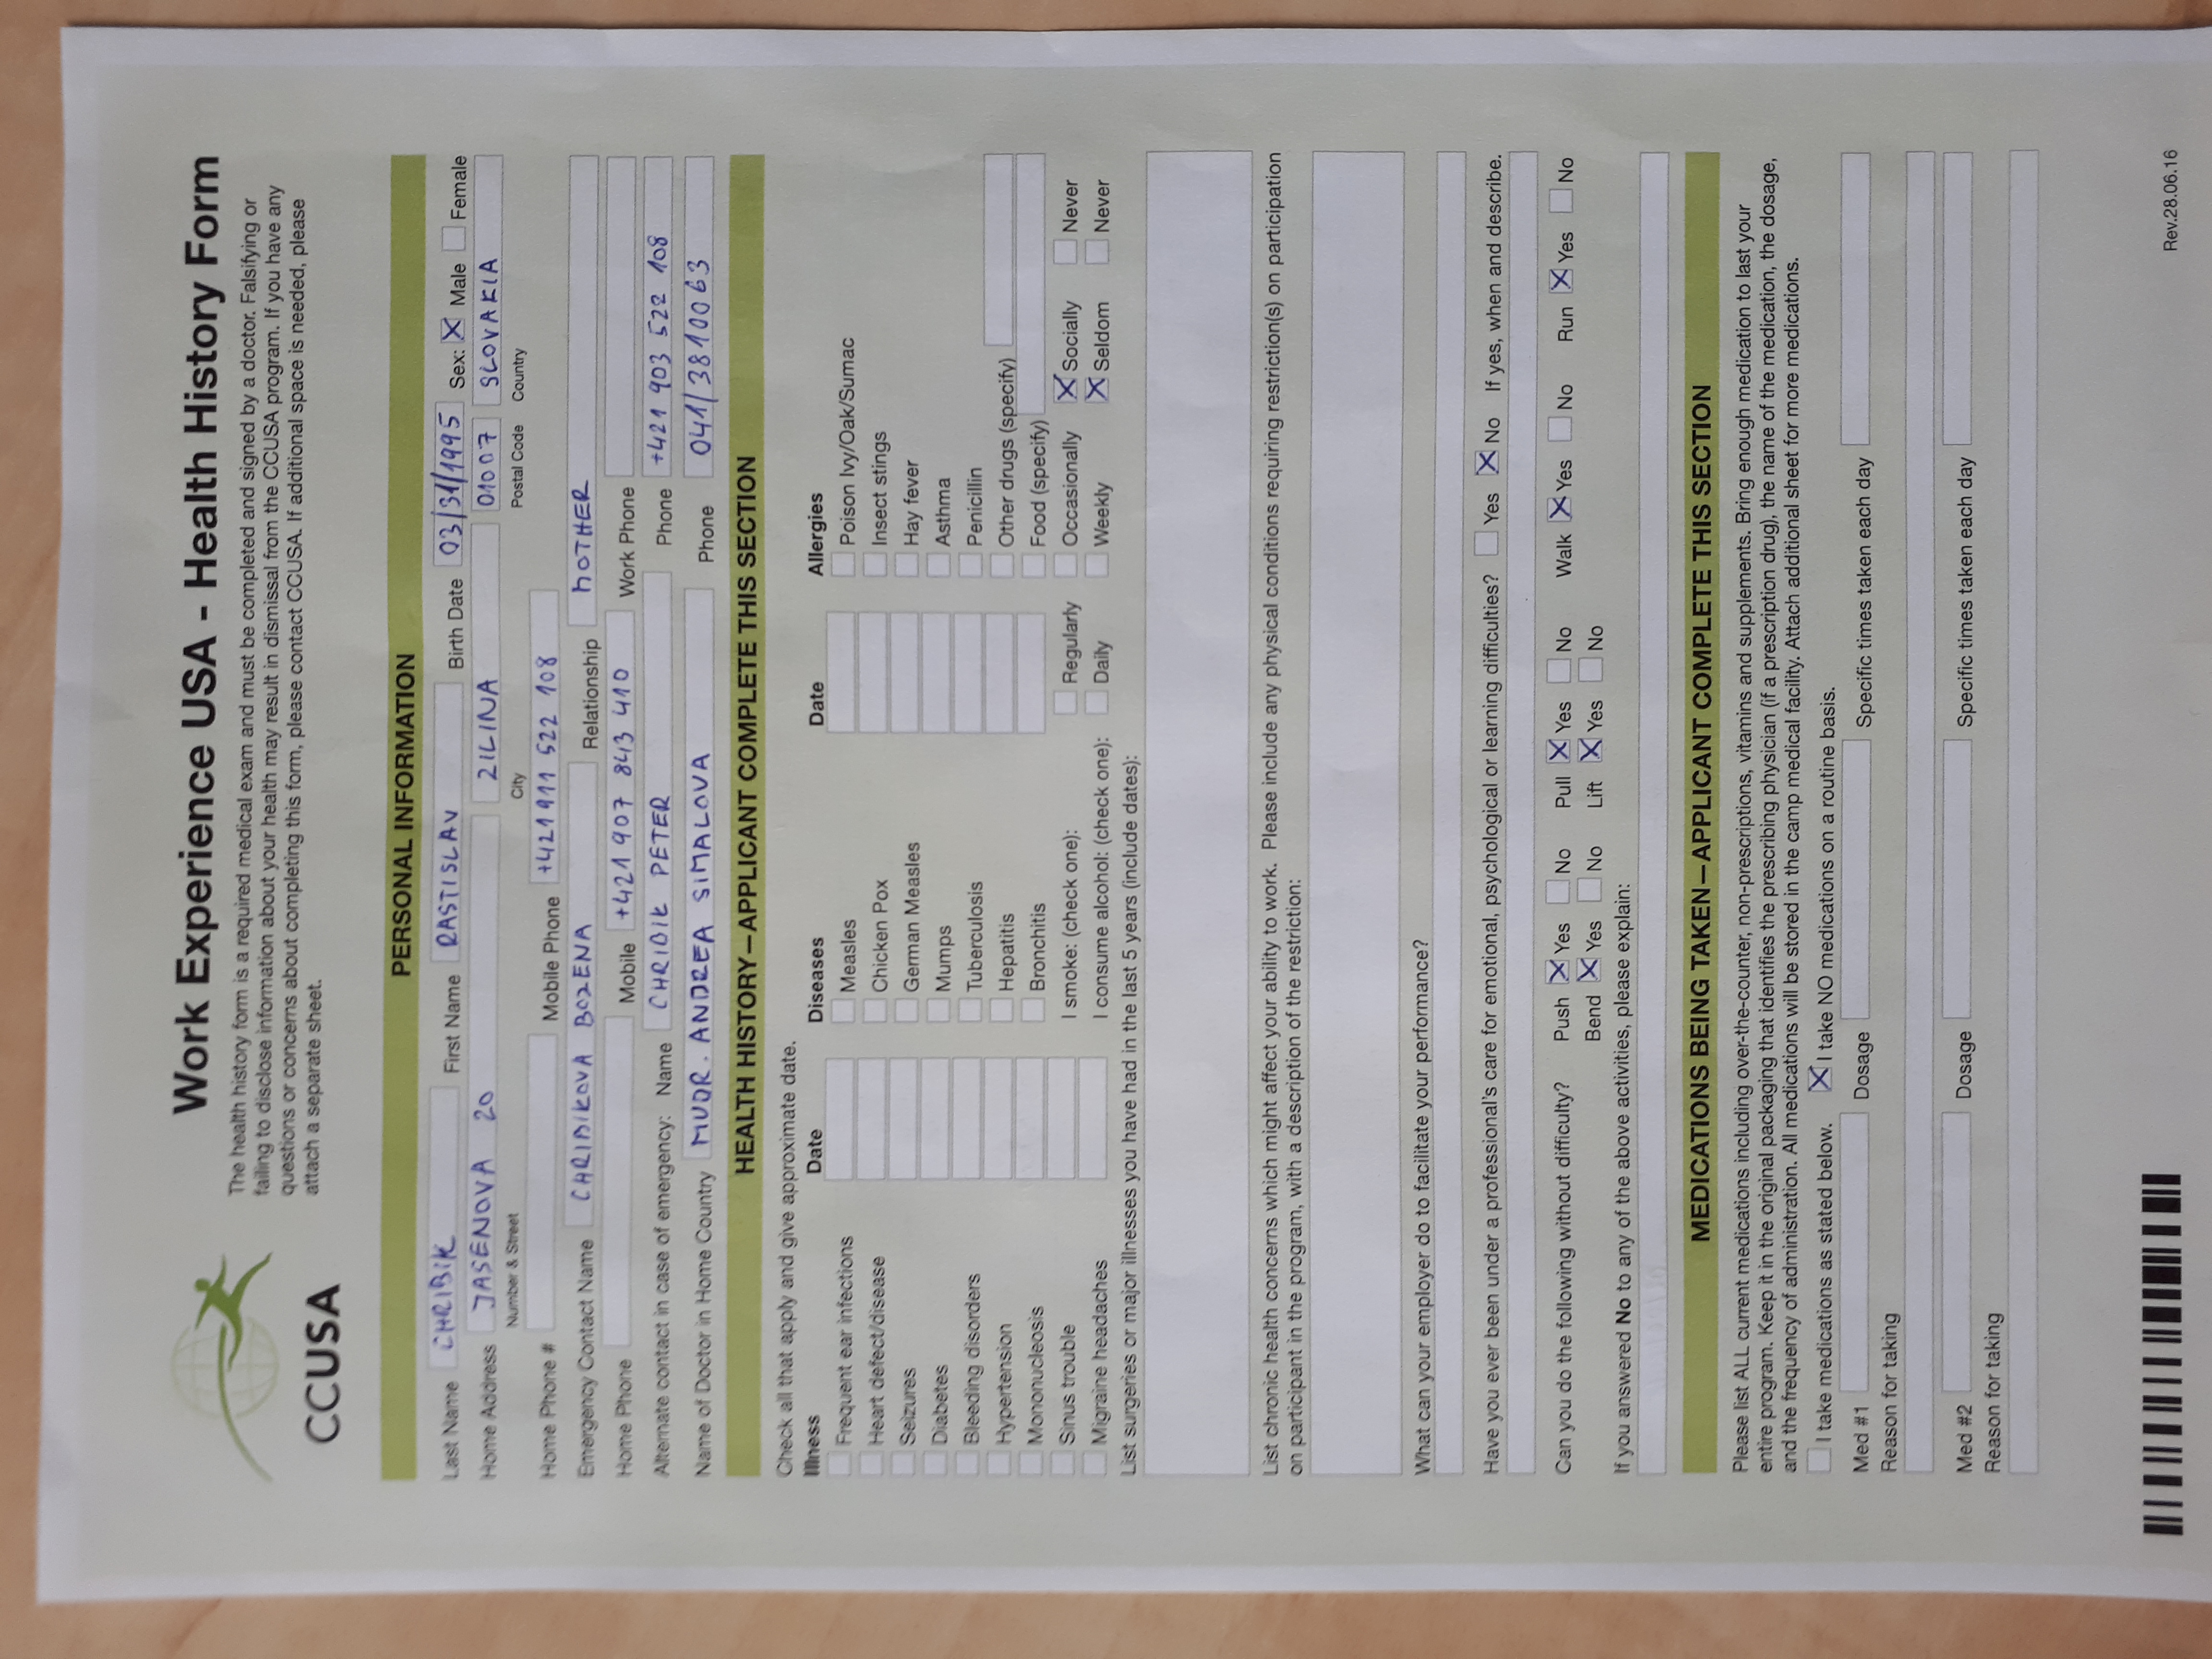 CCUSA
Work Experience USA - Health History Form
The health history form is a required medical exam and must be completed and signed by a doctor. Falsifying or
failing to disclose information about your health may result in dismissal from the CCUSA program. If you have any
questions or concerns about completing this form, please contact CCUSA. If additional space is needed, please
attach a separate sheet.
PERSONAL INFORMATION
Last Name CHRIBIK First Name RASTISLAV Birth Date 03/31/1995 Sex: X Male Female
Home Address JASENOVA 20 ZILINA 01007 SLOVAKIA
Number & Street City Postal Code Country
Home Phone # Mobile Phone +421 911 522 108
Emergency Contact Name CHRIBIKOVA BOZENA Relationship MOTHER
Home Phone Mobile +421 907 843 410 Work Phone
Alternate contact in case of emergency: Name CHRIBIK PETER Phone +421 903 522 108
Name of Doctor in Home Country MUDR. ANDREA SIMALOVA Phone 041/3810063
HEALTH HISTORY—APPLICANT COMPLETE THIS SECTION
Check all that apply and give approximate date.
Illness Date Diseases Date Allergies
Frequent ear infections Measles Poison Ivy/Oak/Sumac
Heart defect/disease Chicken Pox Insect stings
Seizures German Measles Hay fever
Diabetes Mumps Asthma
Bleeding disorders Tuberculosis Penicillin
Hypertension Hepatitis Other drugs (specify)
Mononucleosis Bronchitis Food (specify)
Sinus trouble I smoke: (check one): Regularly Occasionally X Socially Never
Migraine headaches I consume alcohol: (check one): Daily Weekly X Seldom Never
List surgeries or major illnesses you have had in the last 5 years (include dates):
List chronic health concerns which might affect your ability to work. Please include any physical conditions requiring restriction(s) on participation
on participant in the program, with a description of the restriction:
What can your employer do to facilitate your performance?
Have you ever been under a professional's care for emotional, psychological or learning difficulties? Yes X No If yes, when and describe.
Can you do the following without difficulty? Push X Yes No Pull X Yes No Walk X Yes No Run X Yes No
Bend X Yes No Lift X Yes No
If you answered No to any of the above activities, please explain:
MEDICATIONS BEING TAKEN—APPLICANT COMPLETE THIS SECTION
Please list ALL current medications including over-the-counter, non-prescriptions, vitamins and supplements. Bring enough medication to last your
entire program. Keep it in the original packaging that identifies the prescribing physician (if a prescription drug), the name of the medication, the dosage,
and the frequency of administration. All medications will be stored in the camp medical facility. Attach additional sheet for more medications.
I take medications as stated below. X I take NO medications on a routine basis.
Med #1 Dosage Specific times taken each day
Reason for taking
Med #2 Dosage Specific times taken each day
Reason for taking
Rev.28.06.16